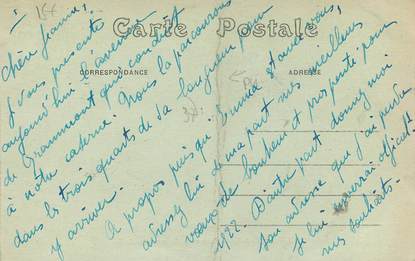 Carte Postale
CORRESPONDANCE
ADRESSE
Chère Jeanne,
J'vous présente
aujourd'hui l'avenue
de Grammont qui conduit
à notre caserne. Nous la parcourons
dans les trois quarts de sa longueur pour
y arriver.
A propos puisqu'
adressez lui de ma part mes meilleurs
vœux de bonheur et prospérité pour
1922. D'autre part donnez moi
son adresse que j'ai perdue
je lui enverrai
mes souhaits.